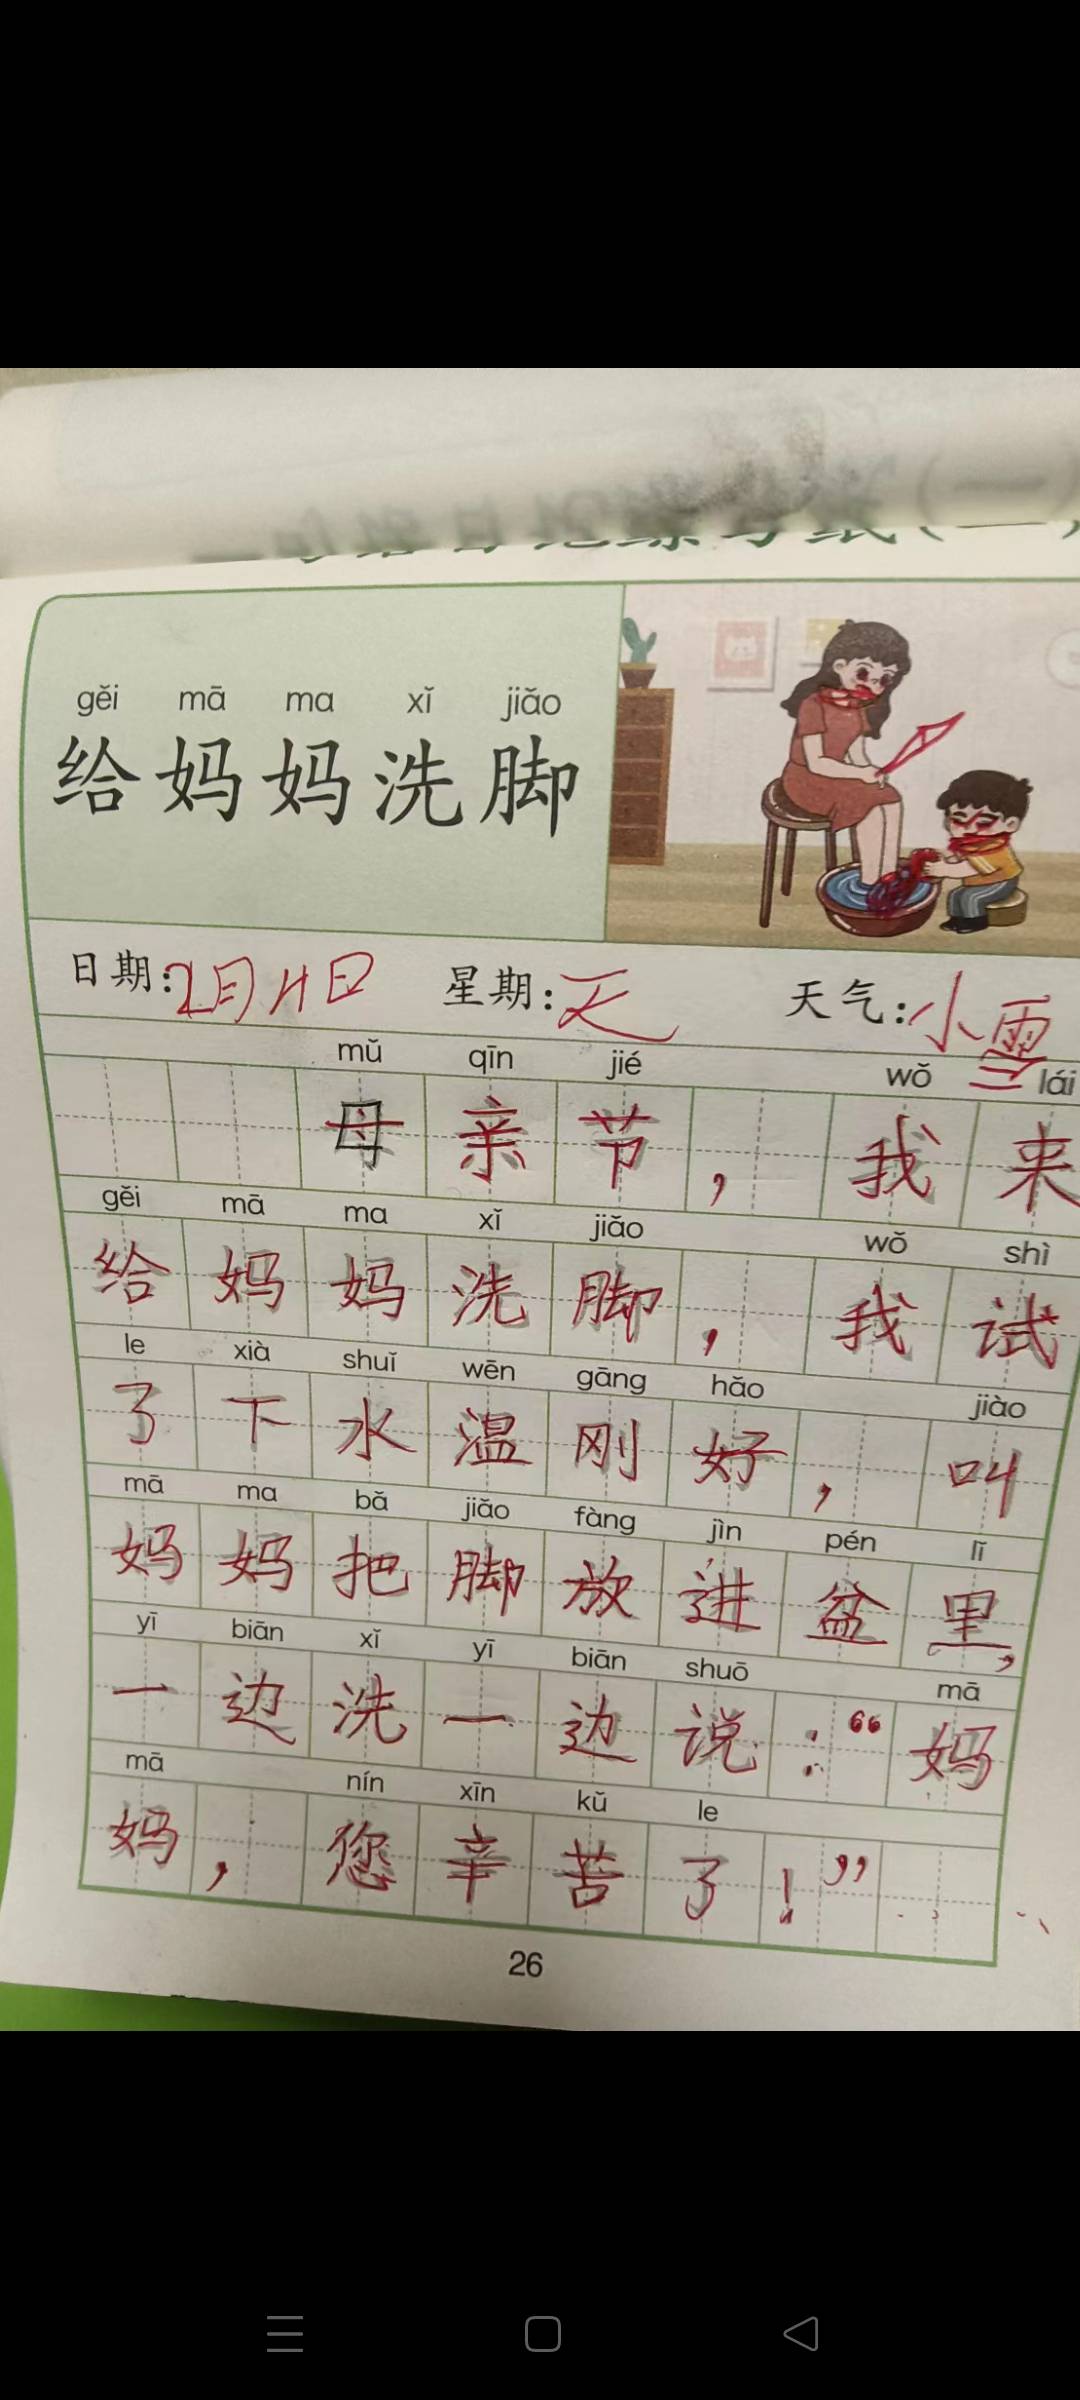 gěi mā ma xǐ jiǎo
给妈妈洗脚
日期：2月11日 星期：天 天气：小雪
mǔ qīn jié wǒ lái
母亲节，我来
gěi mā ma xǐ jiǎo wǒ shì
给妈妈洗脚，我试
le xià shuǐ wēn gāng hǎo jiào
了下水温刚好，叫
mā ma bǎ jiǎo fàng jìn pén lǐ
妈妈把脚放进盆里，
yī biān xǐ yī biān shuō mā
一边洗一边说：“妈
mā nín xīn kǔ le
妈，您辛苦了！”
26